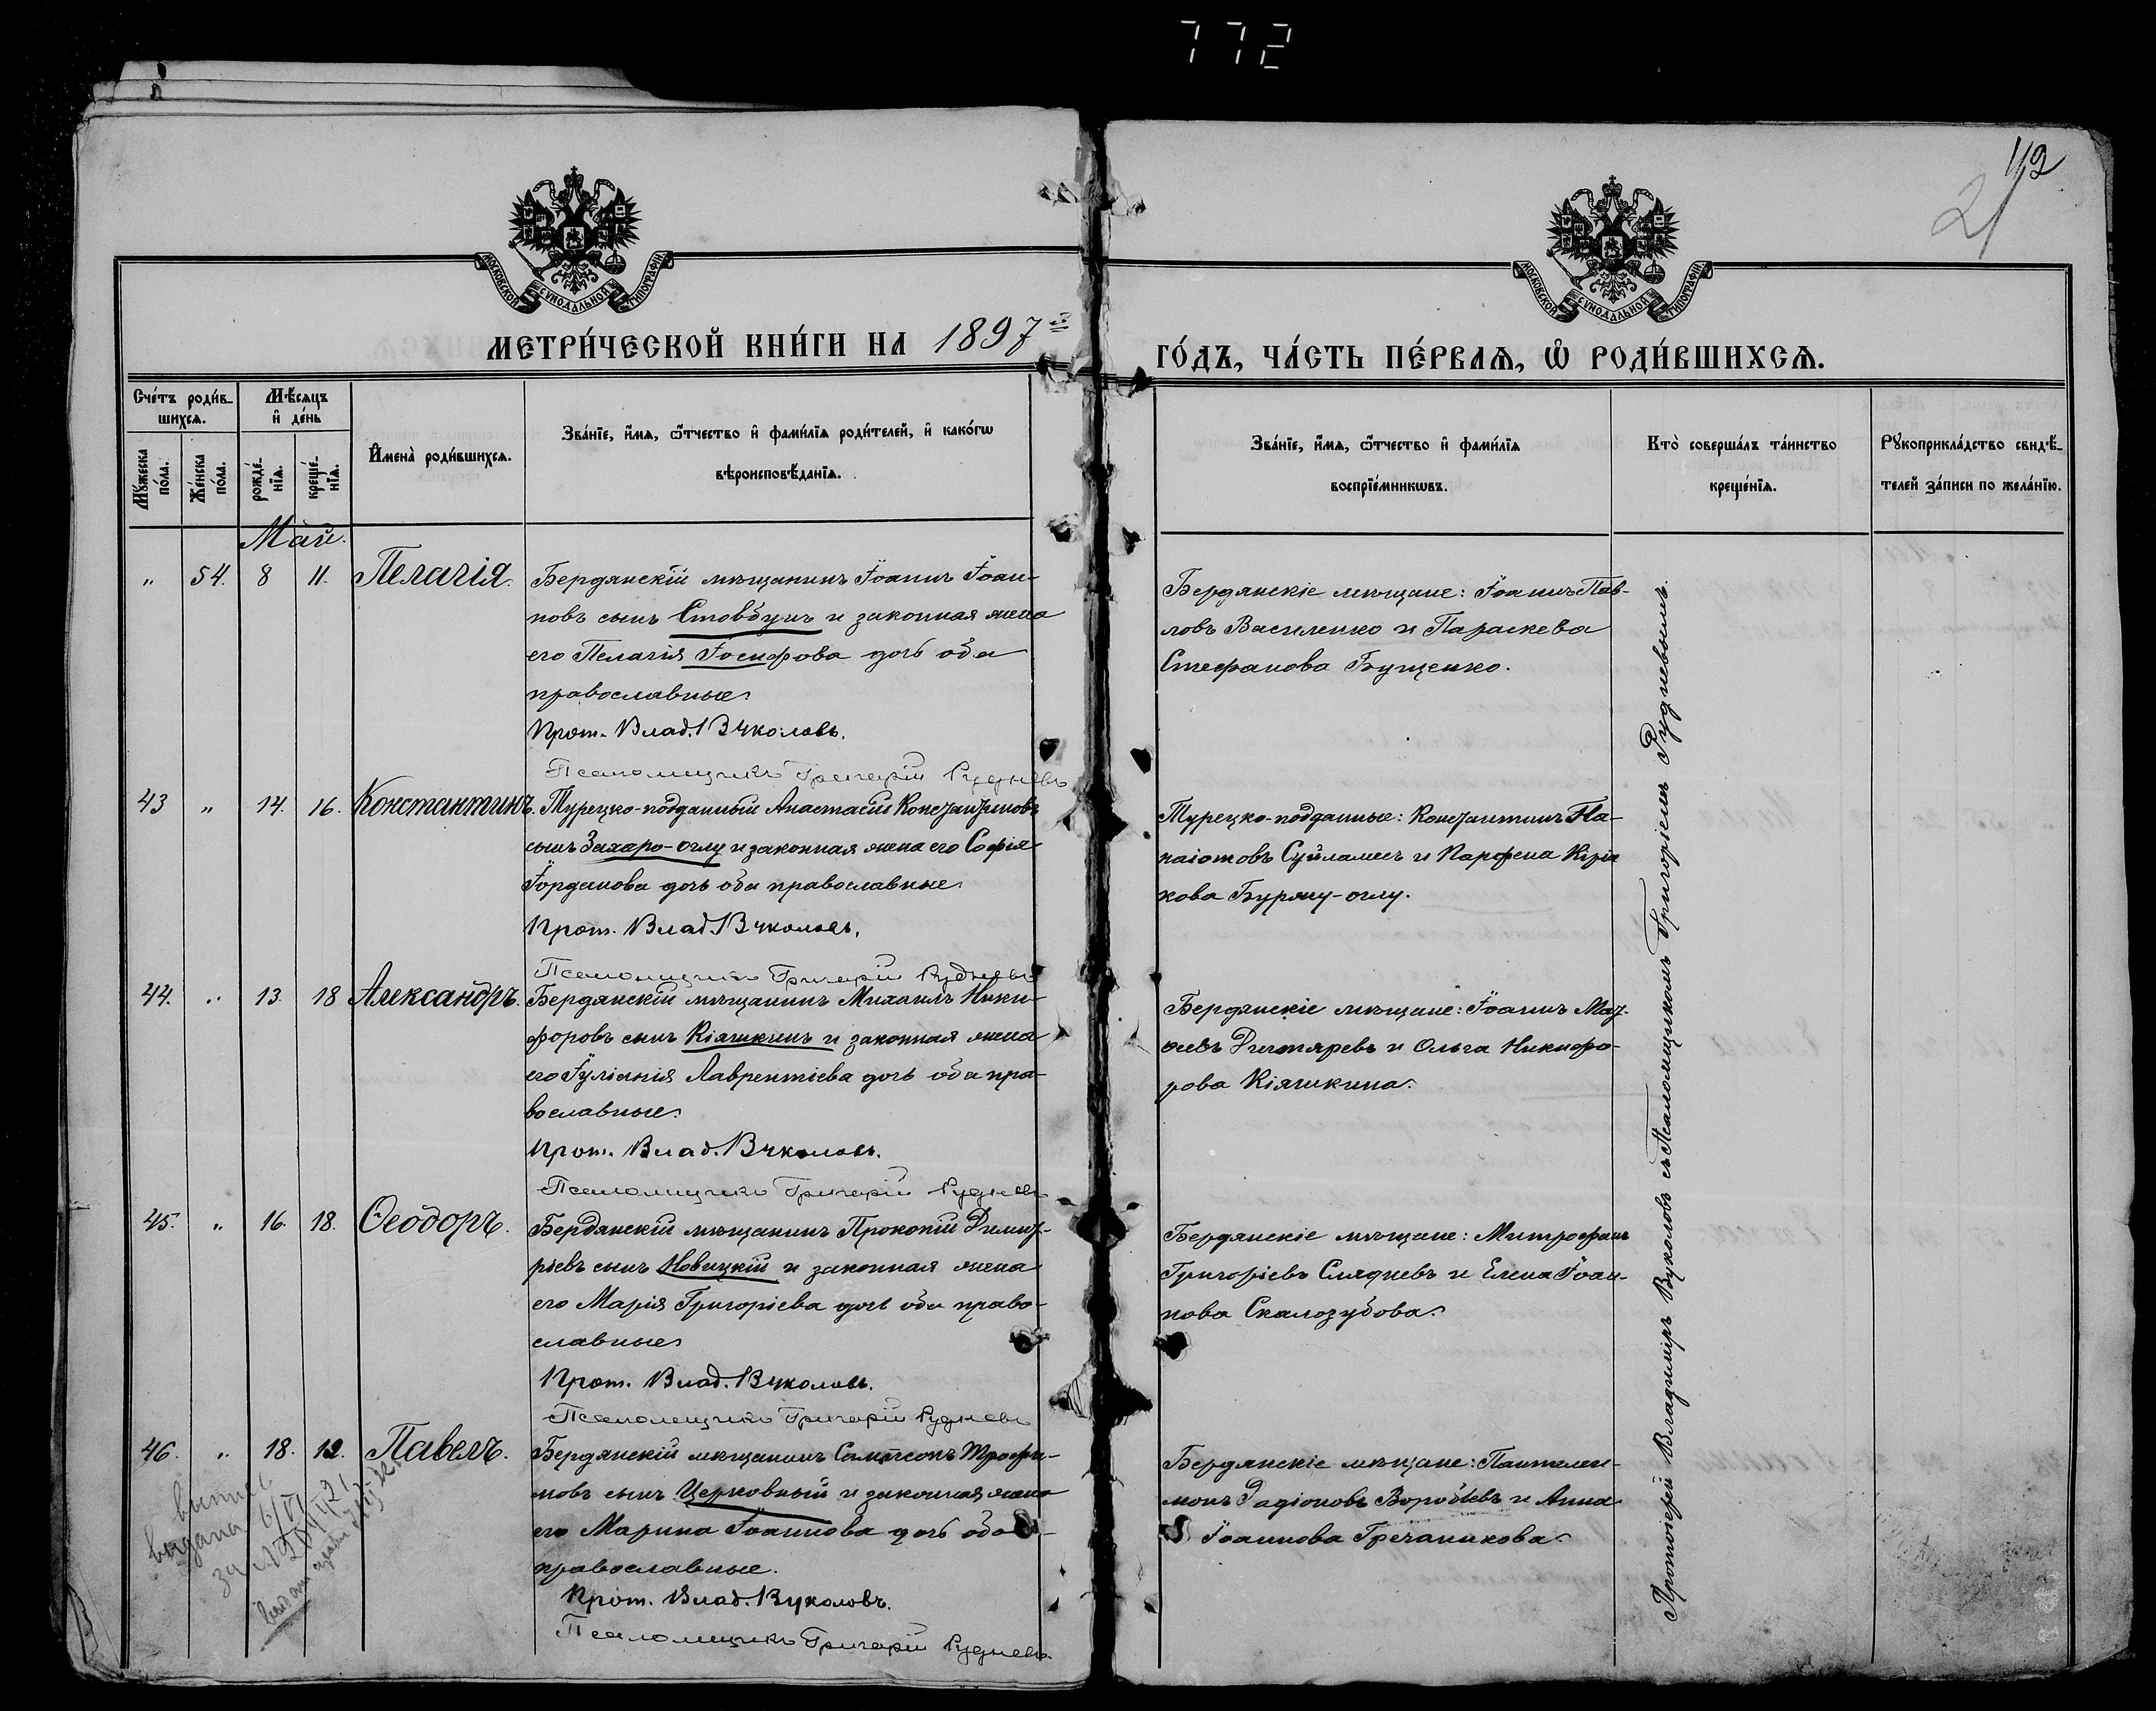 772
112
21
МОСКОВСКОЙ СУНОДАЛЬНОЙ ТИПОГРАФІИ
МОСКОВСКОЙ СУНОДАЛЬНОЙ ТИПОГРАФІИ
МЕТРИ́ЧЕСКОЙ КНИ́ГИ НА 1897й
ГО́ДЪ, ЧА́СТЬ ПЕ́РВАѦ, Ѡ҆ РОДИ́ВШИХСѦ.
Сче́тъ роди́в-
шихсѧ.
Мѣ́сяцъ
и҆ де́нь
Мꙋ́жеска
по́ла.
Же́нска
по́ла.
рожде́-
нїѧ.
креще́-
нїѧ.
И҆мена̀ роди́вшихсѧ.
Зва́нїе, и҆́мѧ, ѻ҆́тчество и҆ фами́лїѧ роди́телей, и҆ како́гѡ
вѣроисповѣ́данїѧ.
Зва́нїе, и҆́мѧ, ѻ҆́тчество и҆ фами́лїѧ
воспрїе́мникѡвъ.
Кто̀ соверша́лъ та́инство
креще́нїѧ.
Рꙋкоприкла́дство свидѣ́-
телей за́писи по жела́нїю.
Май.
" 54. 8 11. Пелагія.
Бердянскій мѣщанинъ Іоаннъ Іоан-
новъ сынъ Стовбунъ и законная жена
его Пелагія Іосифова дочь оба
православные.
Прот. Влад. Вуколовъ.
Псаломщикъ Григорій Рудневъ
Бердянскіе мѣщане: Іоаннъ Пав-
ловъ Василенко и Параскева
Стефанова Бущенко.
43 " 14. 16. Константинъ.
Турецко-подданный Анастасій Константиновъ
сынъ Захаро-оглу и законная жена его Софія
Іорданова дочь оба православные.
Прот. Влад. Вуколовъ.
Псаломщикъ Григорій Рудневъ
Турецко-подданные: Константинъ Па-
наіотовъ и Парфена Кіріа
кова
44. " 13. 18 Александръ.
Бердянскій мѣщанинъ Михаилъ Ники-
форовъ сынъ Кіяшкинъ и законная жена
его Іуліанія Лаврентіева дочь оба пра-
вославные.
Прот. Влад. Вуколовъ.
Псаломщикъ Григорій Рудневъ
Бердянскіе мѣщане: Іоаннъ Мат-
ѳеевъ Дегтяревъ и Ольга Никифо-
рова Кіяшкина.
45. " 16. 18. Ѳеодоръ.
Бердянскій мѣщанинъ Прокопій Димит-
ріевъ сынъ Новицкій и законная жена
его Марія Григоріева дочь оба право-
славные.
Прот. Влад. Вуколовъ.
Псаломщикъ Григорій Рудневъ
Бердянскіе мѣщане: Митрофанъ
Григоріевъ Сляднев и Елена Іоан-
нова Скалозубова.
46. " 18. 19. Павелъ.
Бердянскій мѣщанинъ Сампсонъ Трофи-
мовъ сынъ Церковный и законная жена
его Марина Іоаннова дочь оба
православные.
Прот. Влад. Вуколовъ.
Псаломщикъ Григорій Рудневъ.
Бердянскіе мѣщане: Пантелеи-
монъ Радіоновъ Воробьевъ и Анна
Іоаннова Гречаникова.
Протоіерей Владиміръ Вуколовъ съ Псаломщикомъ Григоріемъ Рудневымъ.
выпись
выдана 6/VI